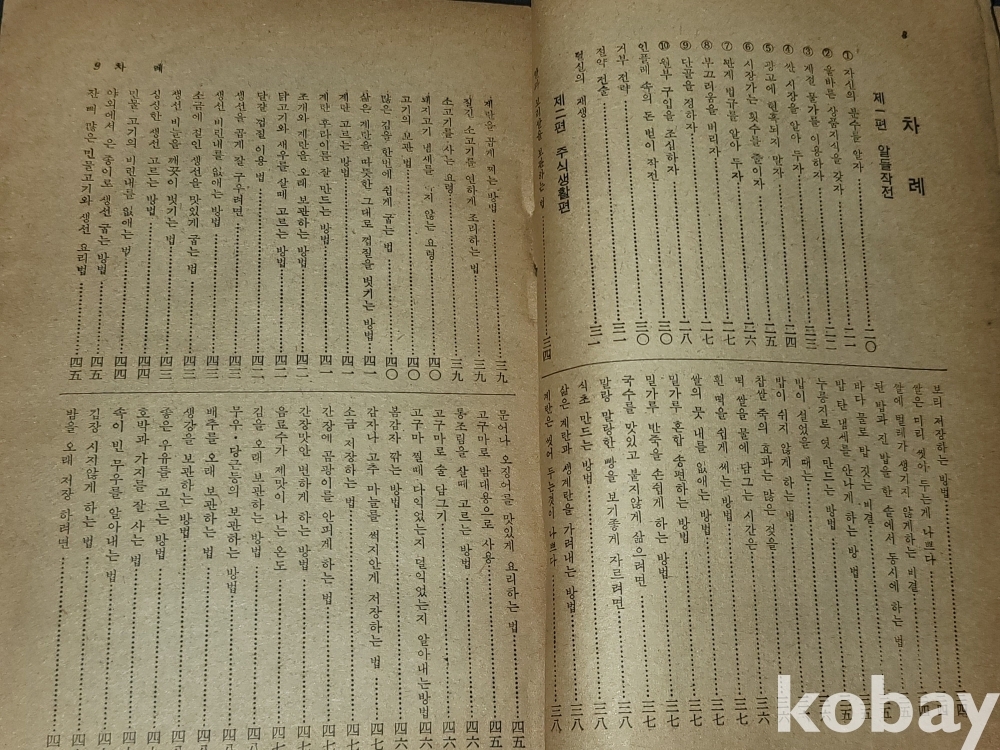 8
차 례
제一편 알들작전
① 자신의 분수를 알자 二〇
② 올바른 상품지식을 갖자 二二
③ 계절 물가를 이용하자 二三
④ 싼 시장을 알아 두자 二四
⑤ 광고에 현혹되지 말자 二五
⑥ 시장가는 횟수를 줄이자 二六
⑦ 반계 법규를 알아 두자 二七
⑧ 부끄러움을 버리자 二七
⑨ 단골을 정하자 二八
⑩ 월부 구입을 조심하자 三〇
인플레 속의 돈 번이 작전 三〇
거부 전략 三一
절약 전술 三一
헌신의 재생 三二
제二편 주식생활편
보리쌀을 보관하는 법 三四
보리 저장하는 방법
쌀은 미리 씻아 두는게 나쁘다
쌀에 벌레가 생기지 않게하는 비결
된 밥과 진 밥을 한 솥에서 동시에 하는 법
바다 물로 밥 짓는 비결
밥 탄 냄새를 안나게 하는 방법
누룽지로 엿 만드는 방법
밥이 설었을 때는
밥이 쉬지 않게 하는 법
찹쌀 죽의 효과는 많은 것을 三六
떡 쌀을 물에 담그는 시간은 三七
흰 떡을 쉽게 써는 방법 三七
쌀의 뭇 내를 없애는 방법 三七
밀가루 혼합 송편하는 방법 三七
밀가루 반죽을 손쉽게 하는 방법 三七
국수를 맛있고 붙지않게 삶으려면 三八
말랑 말랑한 빵을 보기좋게 자르려면 三八
식초 만드는 방법 三八
삶은 계란과 생계란을 가려내는 방법
계란은 씻어 두는것이 나쁘다 三八
9 차 례
계란을 곱게 찌는 방법 三九
질긴 소고기를 연하게 조리하는 법 三九
소고기를 사는 요령 三九
돼지고기 냄새를 지 않는 요령 四〇
고기의 보관 법 四〇
많은 김을 한번에 쉽게 굽는 법 四〇
삶은 계란을 따뜻한 그대로 껍질을 벗기는 방법 四一
계란 고르는 방법 四一
계란 후라이를 잘 만드는 방법 四一
조개와 계란을 오래 보관하는 방법 四二
닭고기와 새우를 살때 고르는 방법 四二
달걀 껍질 이용 법 四二
생선을 곱게 잘 구우려면 四三
생선 비린내를 없애는 방법 四三
소금에 절인 생선을 맛있게 굽는 법 四三
생선 비늘을 깨끗이 벗기는 법 四三
싱싱한 생선 고르는 방법 四四
민물 고기의 비린내를 없애는 법 四四
야외에서 은 종이로 생선 굽는 방법 四五
잔 뼈 많은 민물고기와 생선 요리법 四五
문어나 오징어를 맛있게 요리하는 법 四五
고구마로 밤대용으로 사용 四五
통조림을 살때 고르는 방법
고구마로 술 담그기
고구마 찔때 다익었는지 덜익었는지 알아내는방법 四六
봄감자 깎는 방법 四六
감자나 고추 마늘을 썩지안게 저장하는 법 四六
소금 저장하는 법 四七
간장에 곰팡이를 안피게 하는 법
간장맛안 변하게 하는 법
음료수가 제맛이 나는 온도
김을 오래 보관하는 방법
무우·당근등의 보관하는 방법
배추를 오래 보관하는 법
생강을 보관하는 방법
좋은 우유를 고르는 방법
호박과 가지를 잘 사는 법
속이 빈 무우를 알아내는 법
김장 시지않게 하는 법
밤을 오래 저장 하려면
kobay